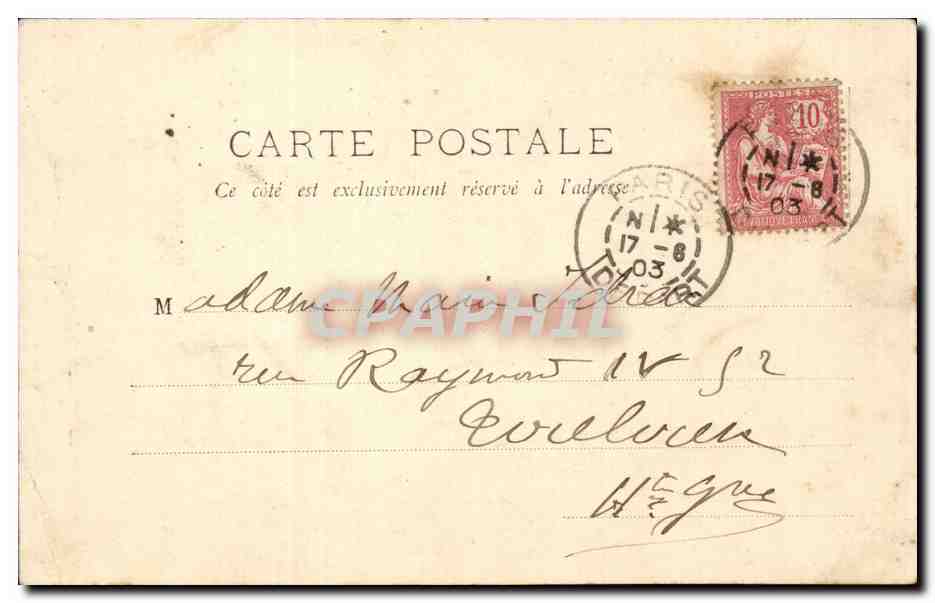 CARTE POSTALE
Ce côté est exclusivement réservé à l'adresse
POSTES
10
PARIS
N *
17 - 6
03
DEPART
N *
17 - 6
03
Madame Marie
CPAPHIL
rue Raymond IV 52
Toulouse
Hte Gne